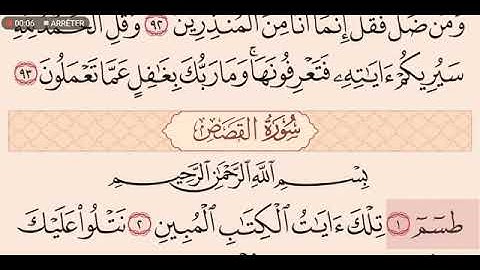 00:06 ARRÊTER
وَمَن ضَلَّ فَقُلْ إِنَّمَآ أَنَا۠ مِنَ ٱلْمُنذِرِينَ ٩٢ وَقُلِ ٱلْحَمْدُ لِلَّهِ
سَيُرِيكُمْ ءَايَٰتِهِۦ فَتَعْرِفُونَهَا ۚ وَمَا رَبُّكَ بِغَٰفِلٍ عَمَّا تَعْمَلُونَ ٩٣
سُورَةُ القَصَصِ
بِسْمِ ٱللَّهِ ٱلرَّحْمَٰنِ ٱلرَّحِيمِ
طسٓمٓ ١ تِلْكَ ءَايَٰتُ ٱلْكِتَٰبِ ٱلْمُبِينِ ٢ نَتْلُوا۟ عَلَيْكَ